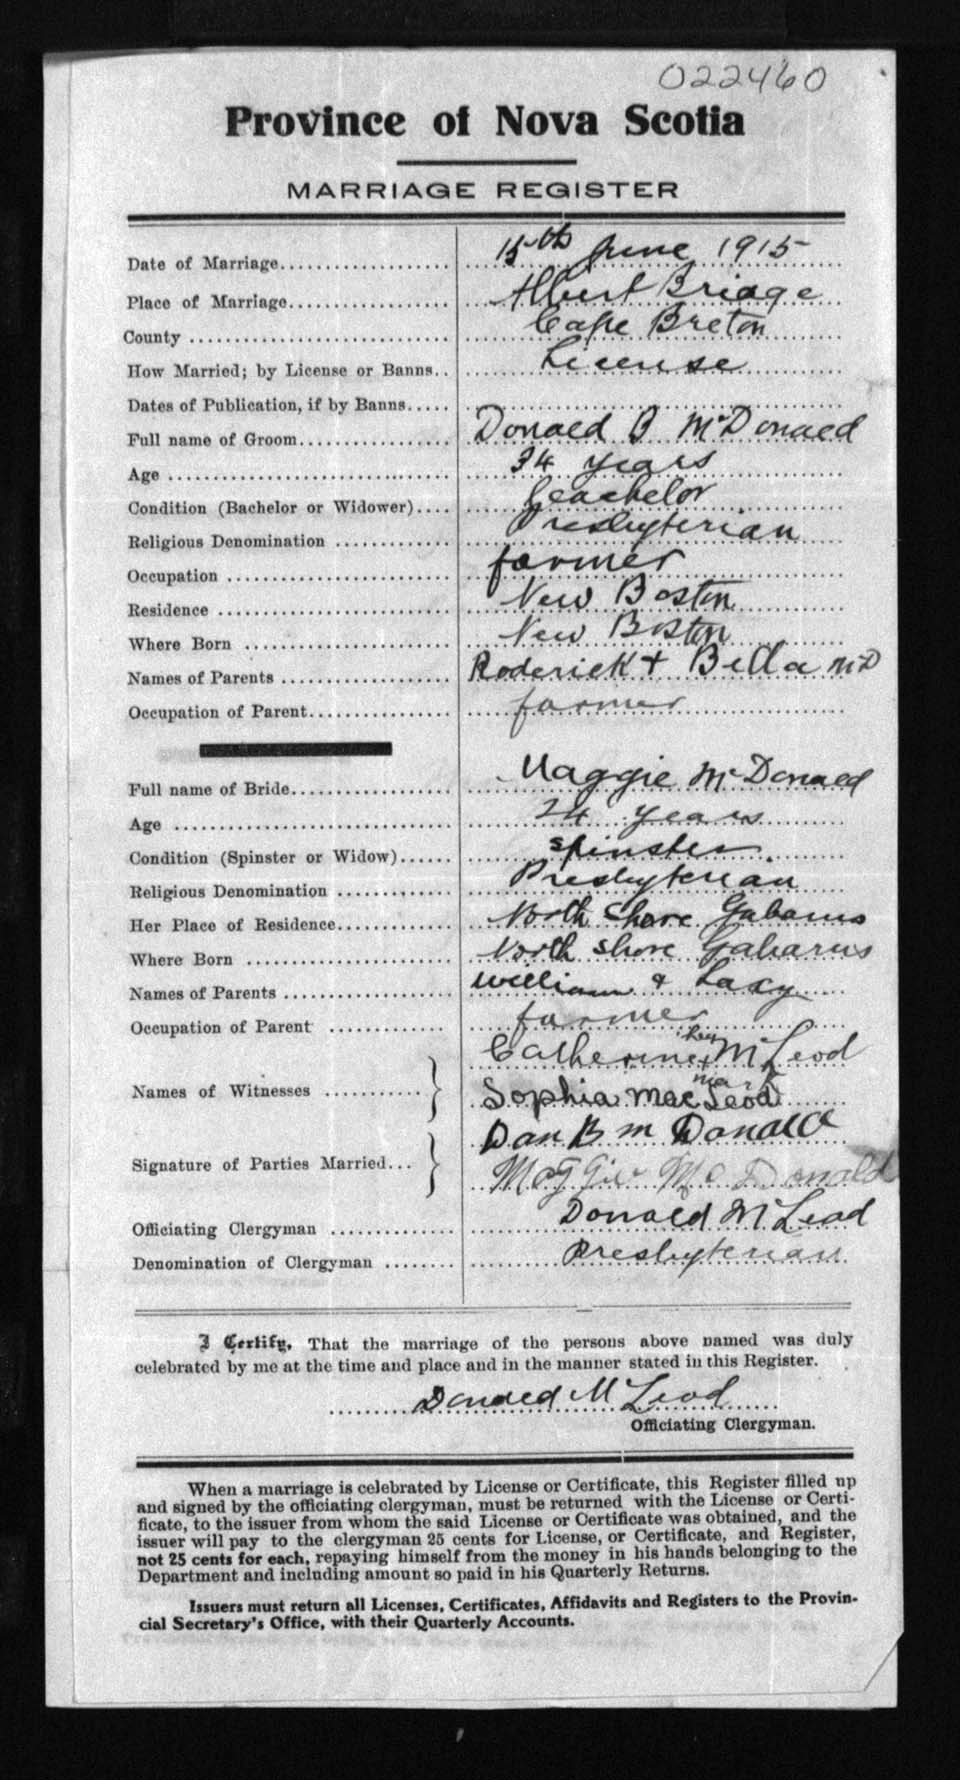 022460
Province of Nova Scotia
MARRIAGE REGISTER
Date of Marriage.................. 15th June 1915
Place of Marriage................. Albert Bridge
County ........................... Cape Breton
How Married; by License or Banns.. License
Dates of Publication, if by Banns.....
Full name of Groom................ Donald B McDonald
Age .............................. 34 years
Condition (Bachelor or Widower).... Beachelor
Religious Denomination ............ Presbyterian
Occupation ....................... farmer
Residence ........................ New Boston
Where Born ....................... New Boston
Names of Parents ................. Roderick + Bella McD
Occupation of Parent.............. farmer
Full name of Bride................ Maggie McDonald
Age .............................. 24 years
Condition (Spinster or Widow)...... spinster
Religious Denomination ............ Presbyterian
Her Place of Residence............. North Shore Gabarus
Where Born ....................... North Shore Gabarus
Names of Parents ................. William & Laxy
Occupation of Parent ............. farmer
Names of Witnesses ............ } Catherine her + mark McLeod
Sophia MacLeod
Signature of Parties Married... } Dan B Mc Donald
Maggie Mc Donald
Officiating Clergyman ............ Donald McLeod
Denomination of Clergyman ........ Presbyterian
I Certify, That the marriage of the persons above named was duly
celebrated by me at the time and place and in the manner stated in this Register.
Donald McLeod
Officiating Clergyman.
When a marriage is celebrated by License or Certificate, this Register filled up
and signed by the officiating clergyman, must be returned with the License or Certi-
ficate, to the issuer from whom the said License or Certificate was obtained, and the
issuer will pay to the clergyman 25 cents for License, or Certificate, and Register,
not 25 cents for each, repaying himself from the money in his hands belonging to the
Department and including amount so paid in his Quarterly Returns.
Issuers must return all Licenses, Certificates, Affidavits and Registers to the Provin-
cial Secretary's Office, with their Quarterly Accounts.